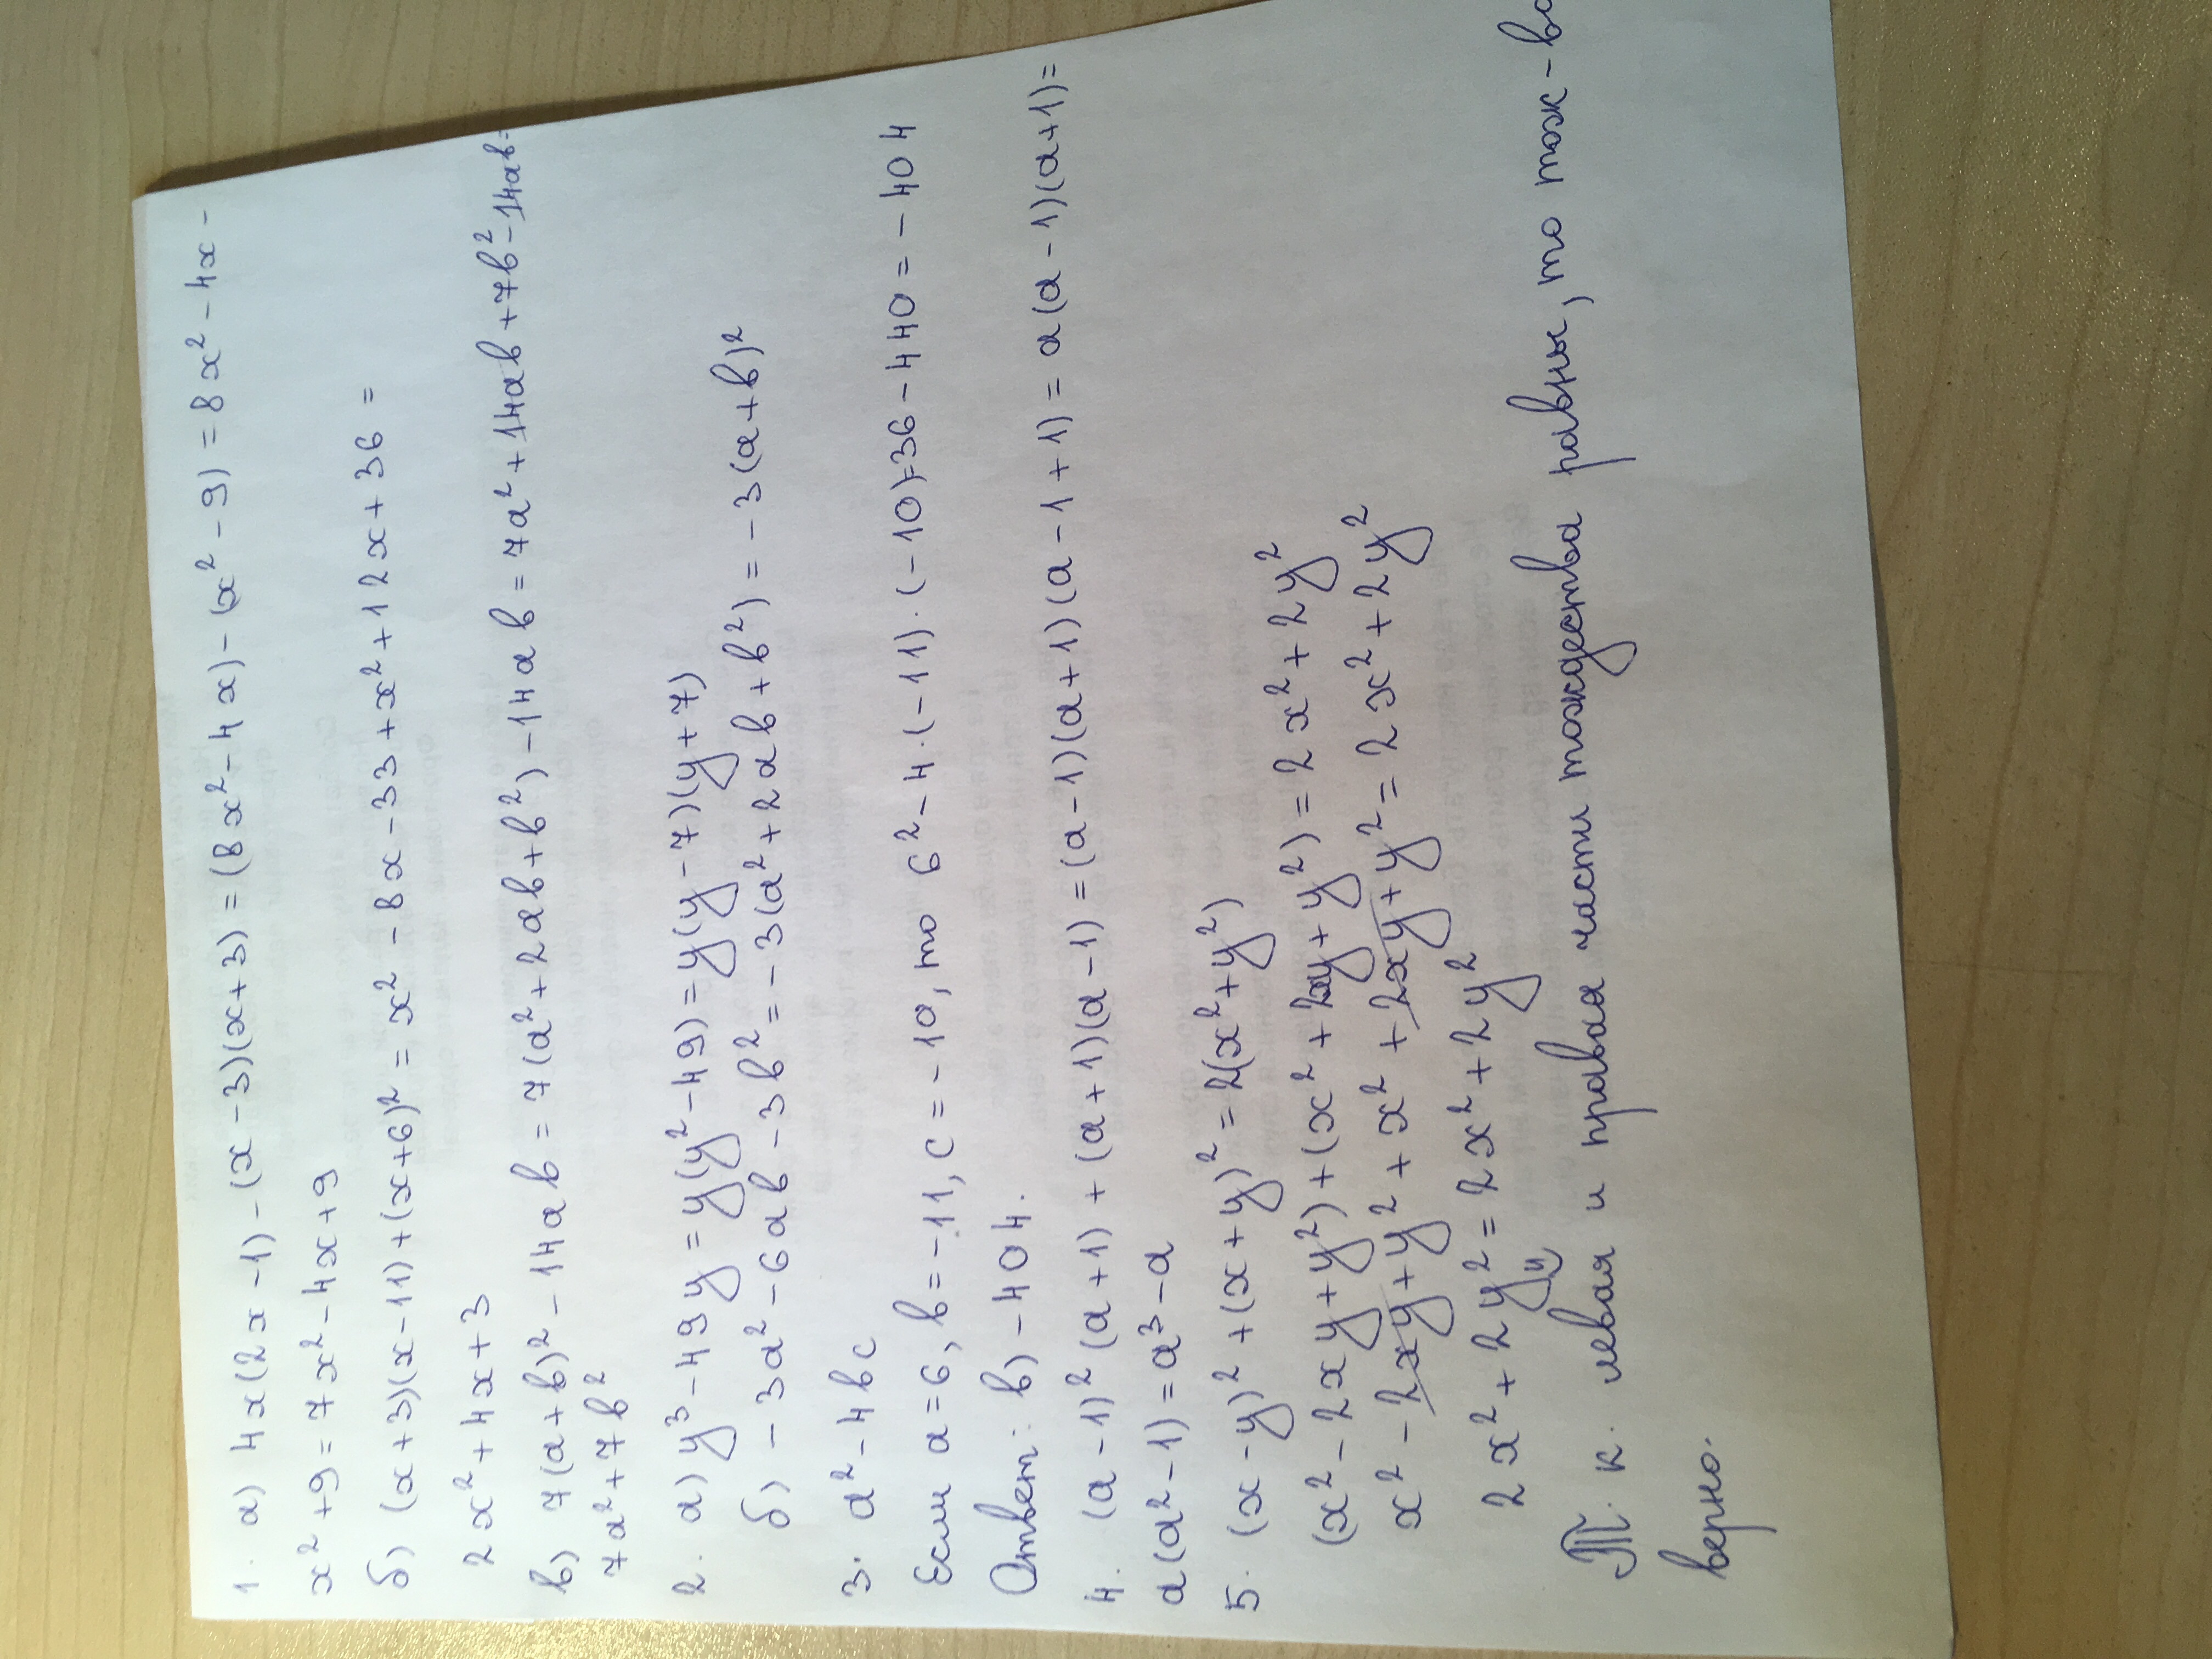 1. а) 4x(2x-1)-(x-3)(x+3)=(8x²-4x)-(x²-9)=8x²-4x-
x²+9=7x²-4x+9
б) (x+3)(x-11)+(x+6)²=x²-8x-33+x²+12x+36=
2x²+4x+3
в) 7(a+b)²-14ab=7(a²+2ab+b²)-14ab=7a²+14ab+7b²-14ab=
7a²+7b²
2. а) y³-49y=y(y²-49)=y(y-7)(y+7)
б) -3a²-6ab-3b²=-3(a²+2ab+b²)=-3(a+b)²
3. a²-4bc
Если a=6, b=-11, c=-10, то 6²-4·(-11)·(-10)=36-440=-404
Ответ: в) -404.
4. (a-1)²(a+1)+(a+1)(a-1)=(a-1)(a+1)(a-1+1)=a(a-1)(a+1)=
a(a²-1)=a³-a
5. (x-y)²+(x+y)²=2(x²+y²)
(x²-2xy+y²)+(x²+2xy+y²)=2x²+2y²
x²-2xy+y²+x²+2xy+y²=2x²+2y²
2x²+2y²=2x²+2y²
Т.к. левая и правая части тождества равны, то тож-во
верно.